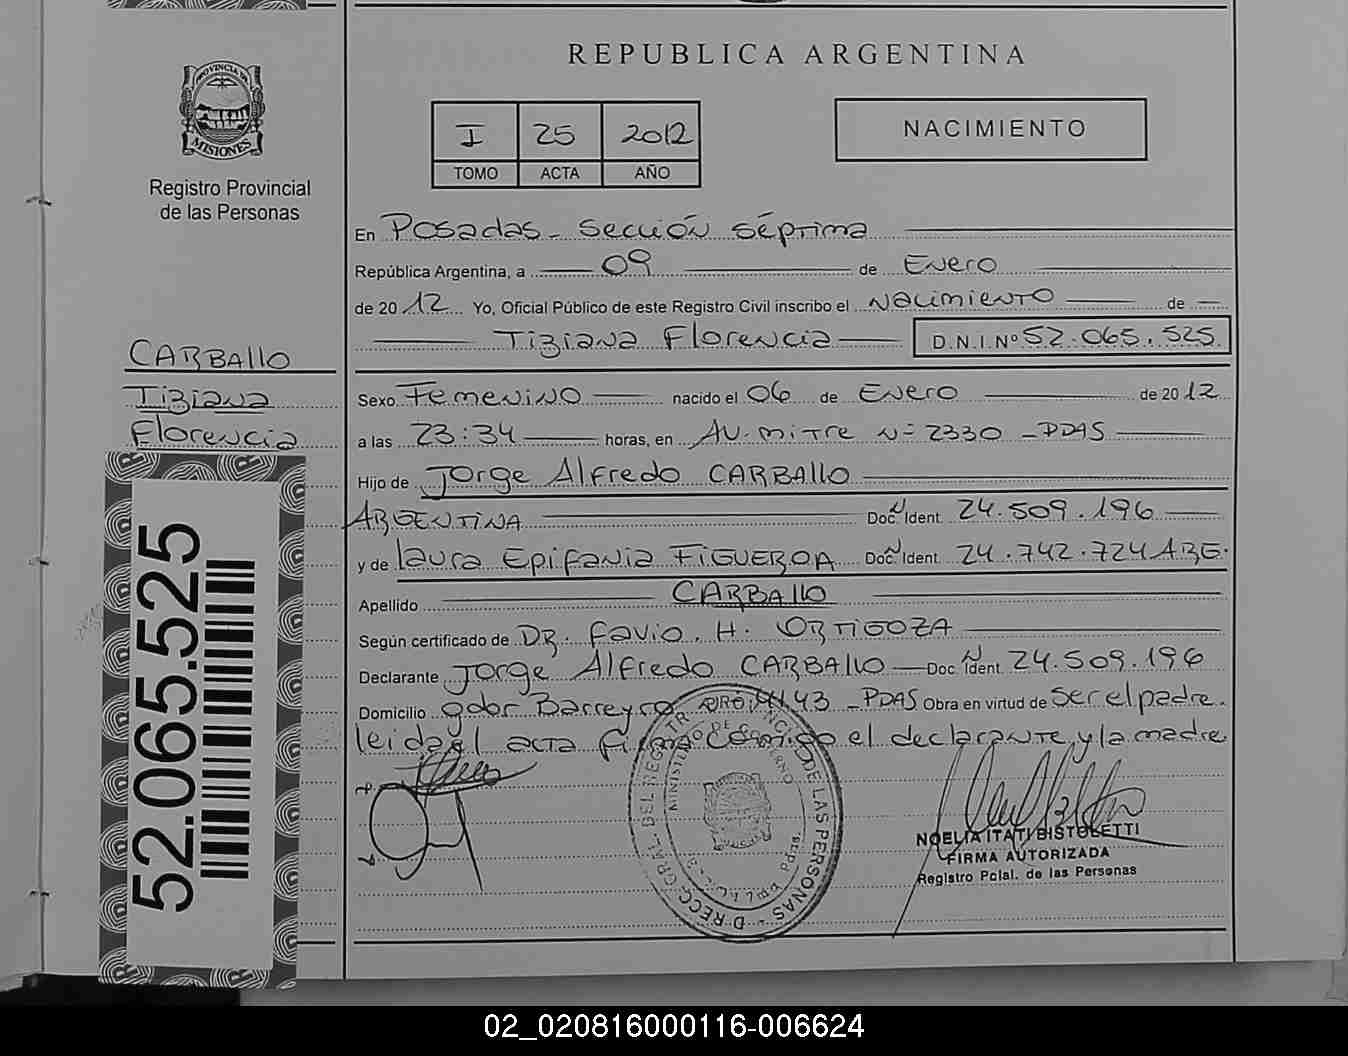 REPUBLICA ARGENTINA
PROVINCIA DE
MISIONES
Registro Provincial
de las Personas
I 25 2012
TOMO ACTA AÑO
NACIMIENTO
En Posadas - Sección séptima
República Argentina, a 09 de Enero
de 2012 Yo, Oficial Público de este Registro Civil inscribo el Nacimiento de
Tiziana Florencia D.N.I. Nº 52.065.525
CARBALLO
Tiziana
Florencia
Sexo Femenino nacido el 06 de Enero de 2012
a las 23:34 horas, en AV. mitre Nº 2330 - PDAS
Hijo de Jorge Alfredo CARBALLO
ARGENTINA Doc. Ident. 24.509.196
y de Laura Epifania FIGUEROA Doc. Ident. 24.742.724 ARG.
Apellido CARBALLO
Según certificado de DR. Favio. H. ORTIGOZA
Declarante Jorge Alfredo CARBALLO Doc. Ident. 24.509.196
Domicilio gdor Barreyro NRO: 4143 - PDAS Obra en virtud de ser el padre.
leida el acta firma comigo el declarante y la madre
52.065.525
NOELIA ITATI BISTOLETTI
FIRMA AUTORIZADA
Registro Pcial. de las Personas
02_020816000116-006624